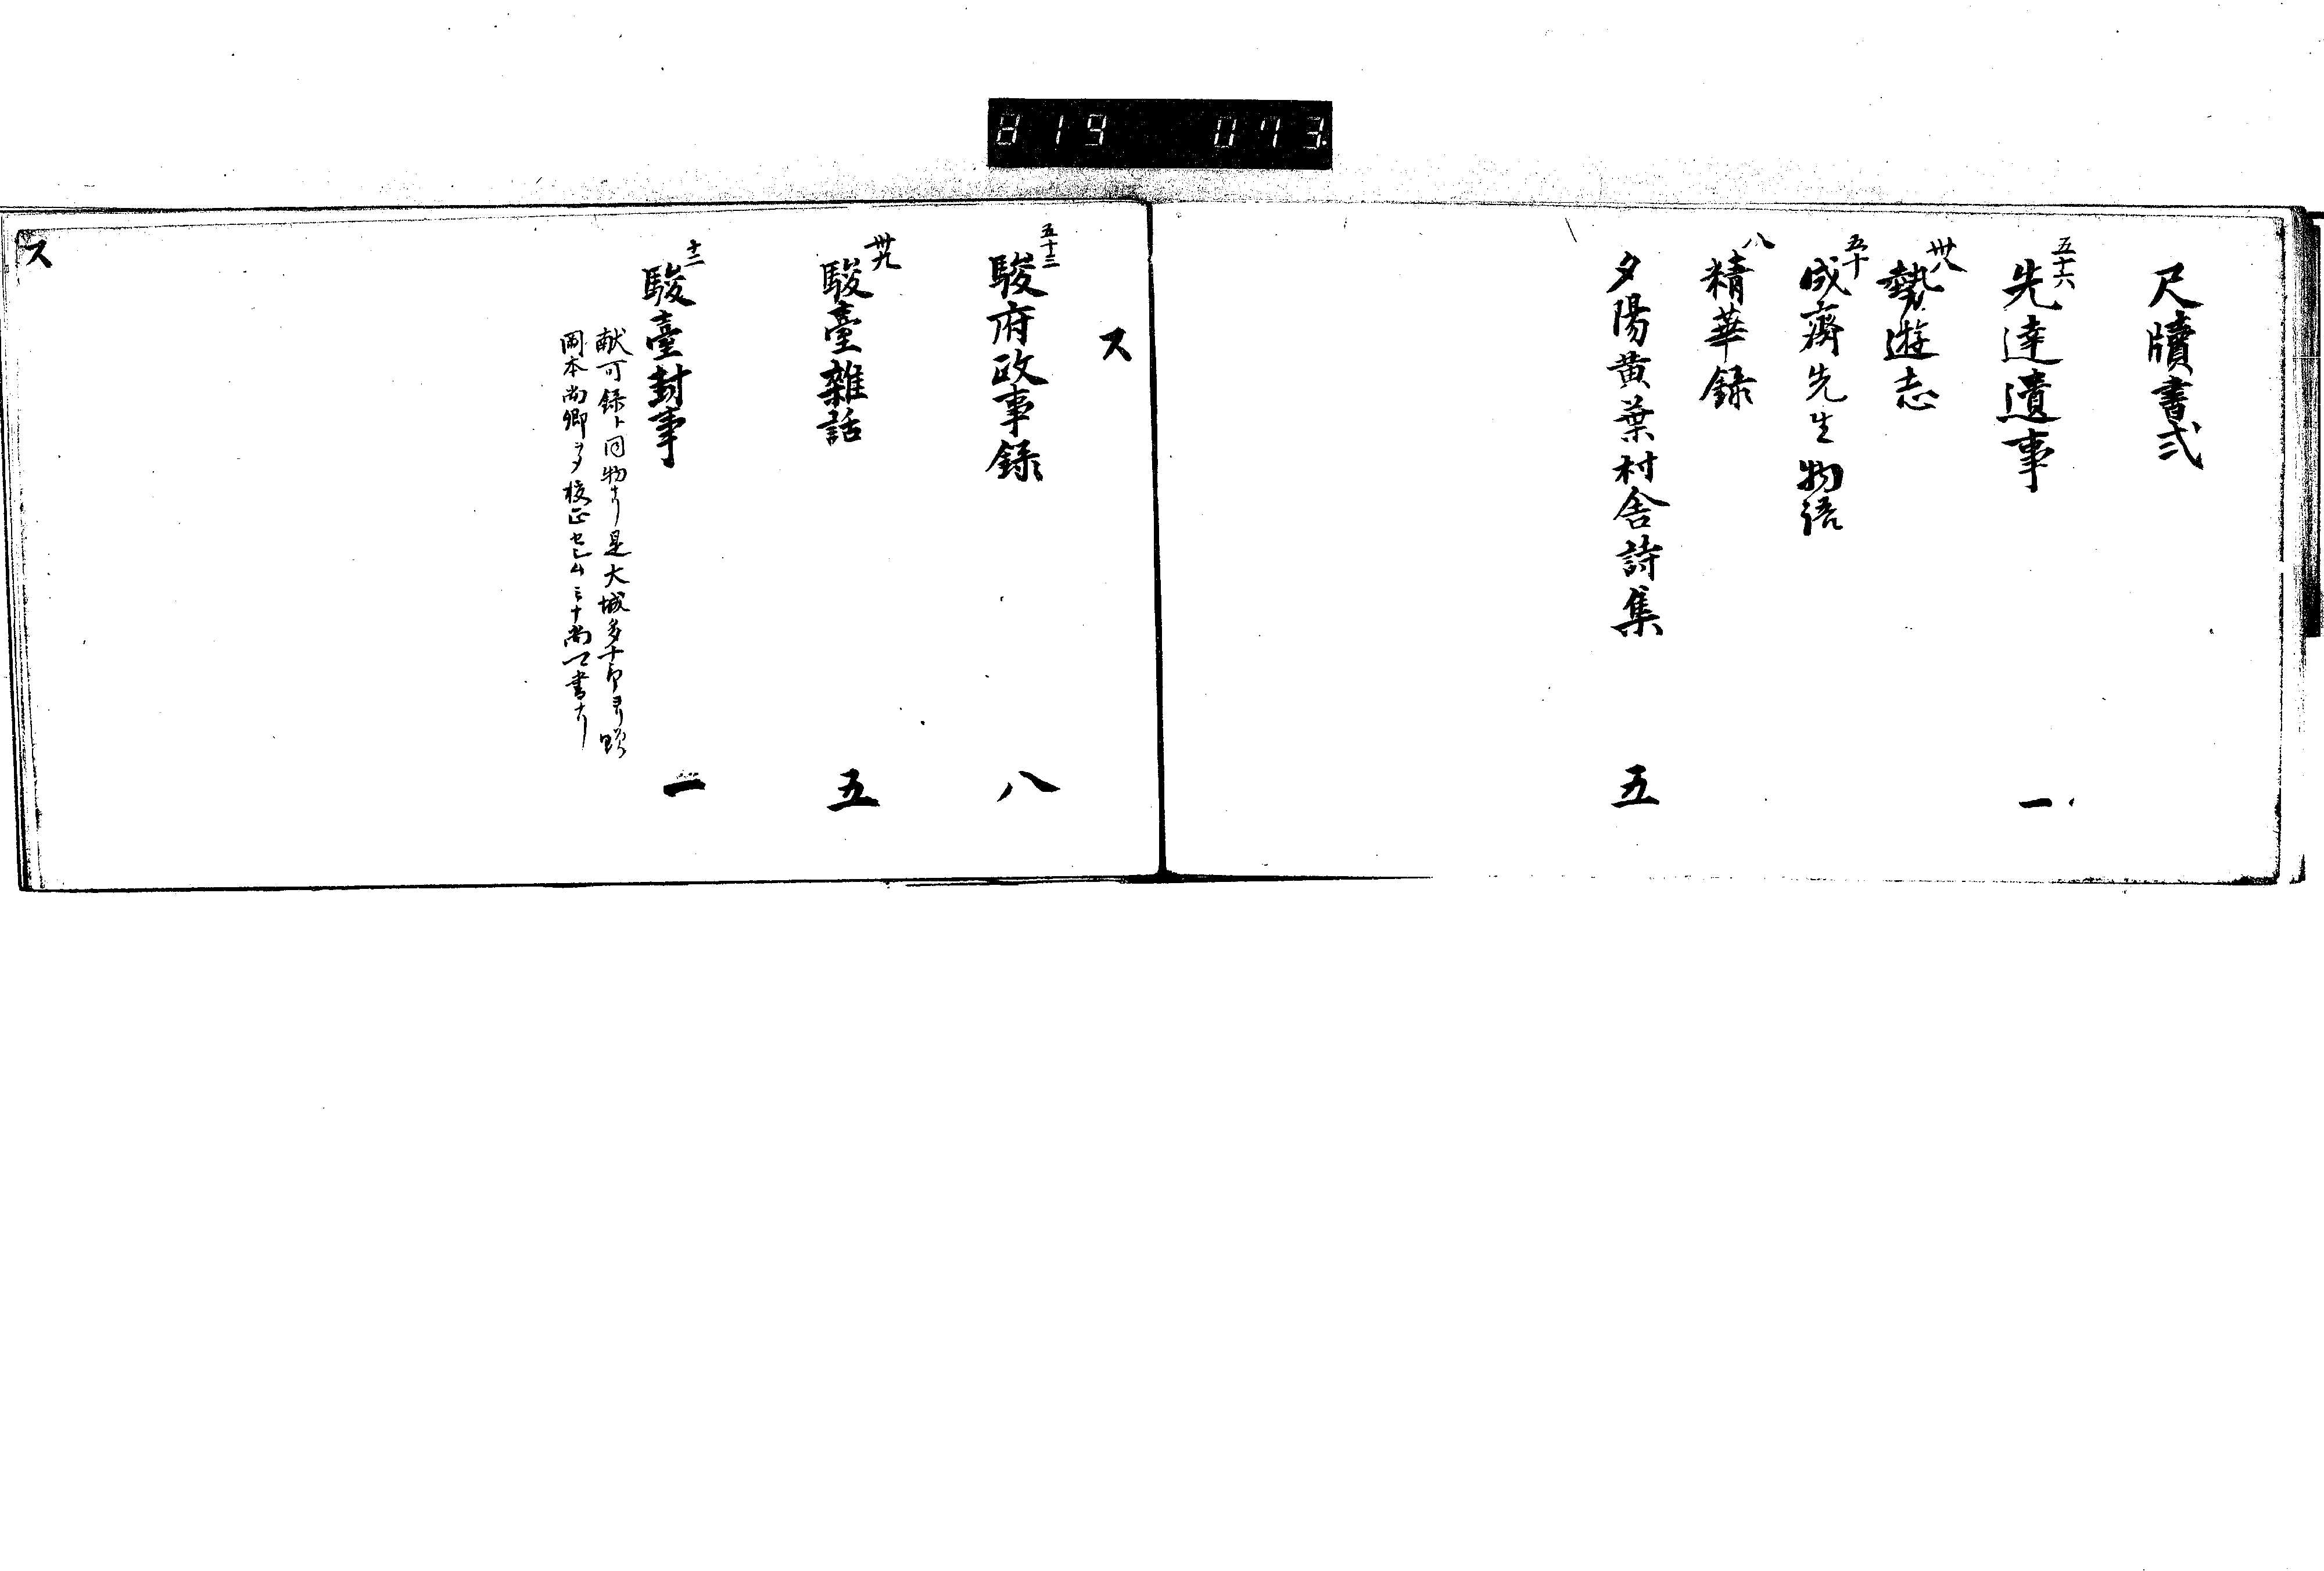 819 073
尺牘書式
五十六
先達遺事 一
卅八
勢遊志
五十
成齋先生物語
八
精華録
夕陽黄葉村舎詩集 五
ス
五十三
駿府政事録 八
卅九
駿臺雜話 五
十二
駿臺封事 一
献可録ト同物ナリ是大城多十郎ヨリ贈
岡本尚卿ヲ
校正セシム
尚
書ナリ
ス